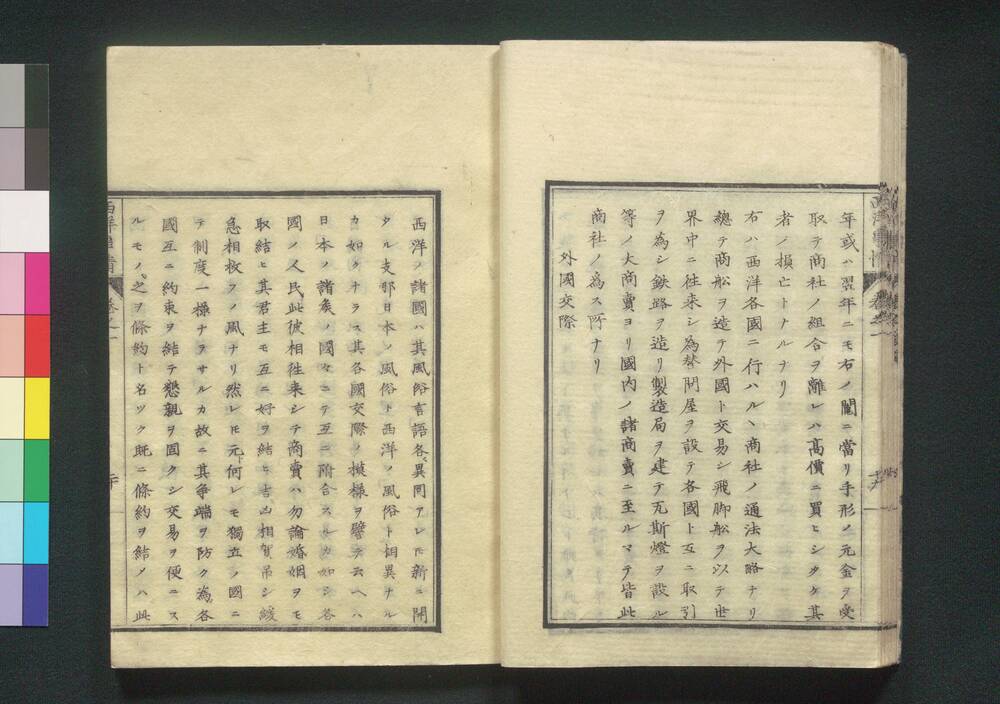 年或ハ翌年ニモ右ノ鬮ニ當リ手形ノ元金ヲ受
取テ商社ノ組合ヲ離レハ高價ニ買ヒシタケ其
者ノ損亡トナルナリ
右ハ西洋各國ニ行ハルヽ商社ノ通法大略ナリ
總テ商船ヲ造テ外國ト交易シ飛脚船ヲ以テ世
界中ニ往来シ為替問屋ヲ設テ各國ト互ニ取引
ヲ為シ鉄路ヲ造リ製造局ヲ建テ瓦斯燈ヲ設ル
等ノ大商賣ヨリ國内ノ諸商賣ニ至ルマテ皆此
商社ノ為ス所ナリ
外國交際
西洋ノ諸國ハ其風俗言語各〻異同アレㇳモ新ニ開
タル支那日本ノ風俗ト西洋ノ風俗ト相異ナル
カ如クナラス其各國交際ノ模様ヲ譬テ云ヘハ
日本ノ諸矦ノ國々ニテ互ニ附合スルカ如シ各
國ノ人民此彼相往来シテ商賣ハ勿論婚姻ヲモ
取結ヒ其君主モ互ニ好ヲ結ヒ吉凶相賀吊シ緩
急相救フノ風ナリ然レㇳモ元ト何レモ獨立ノ國ニ
テ制度一様ナラサルカ故ニ其争端ヲ防ク為各
國互ニ約束ヲ結テ懇親ヲ固クシ交易ヲ便ニス
ルモノ之ヲ條約ト名ツク既ニ條約ヲ結ノハ此
西洋事情
卷之一